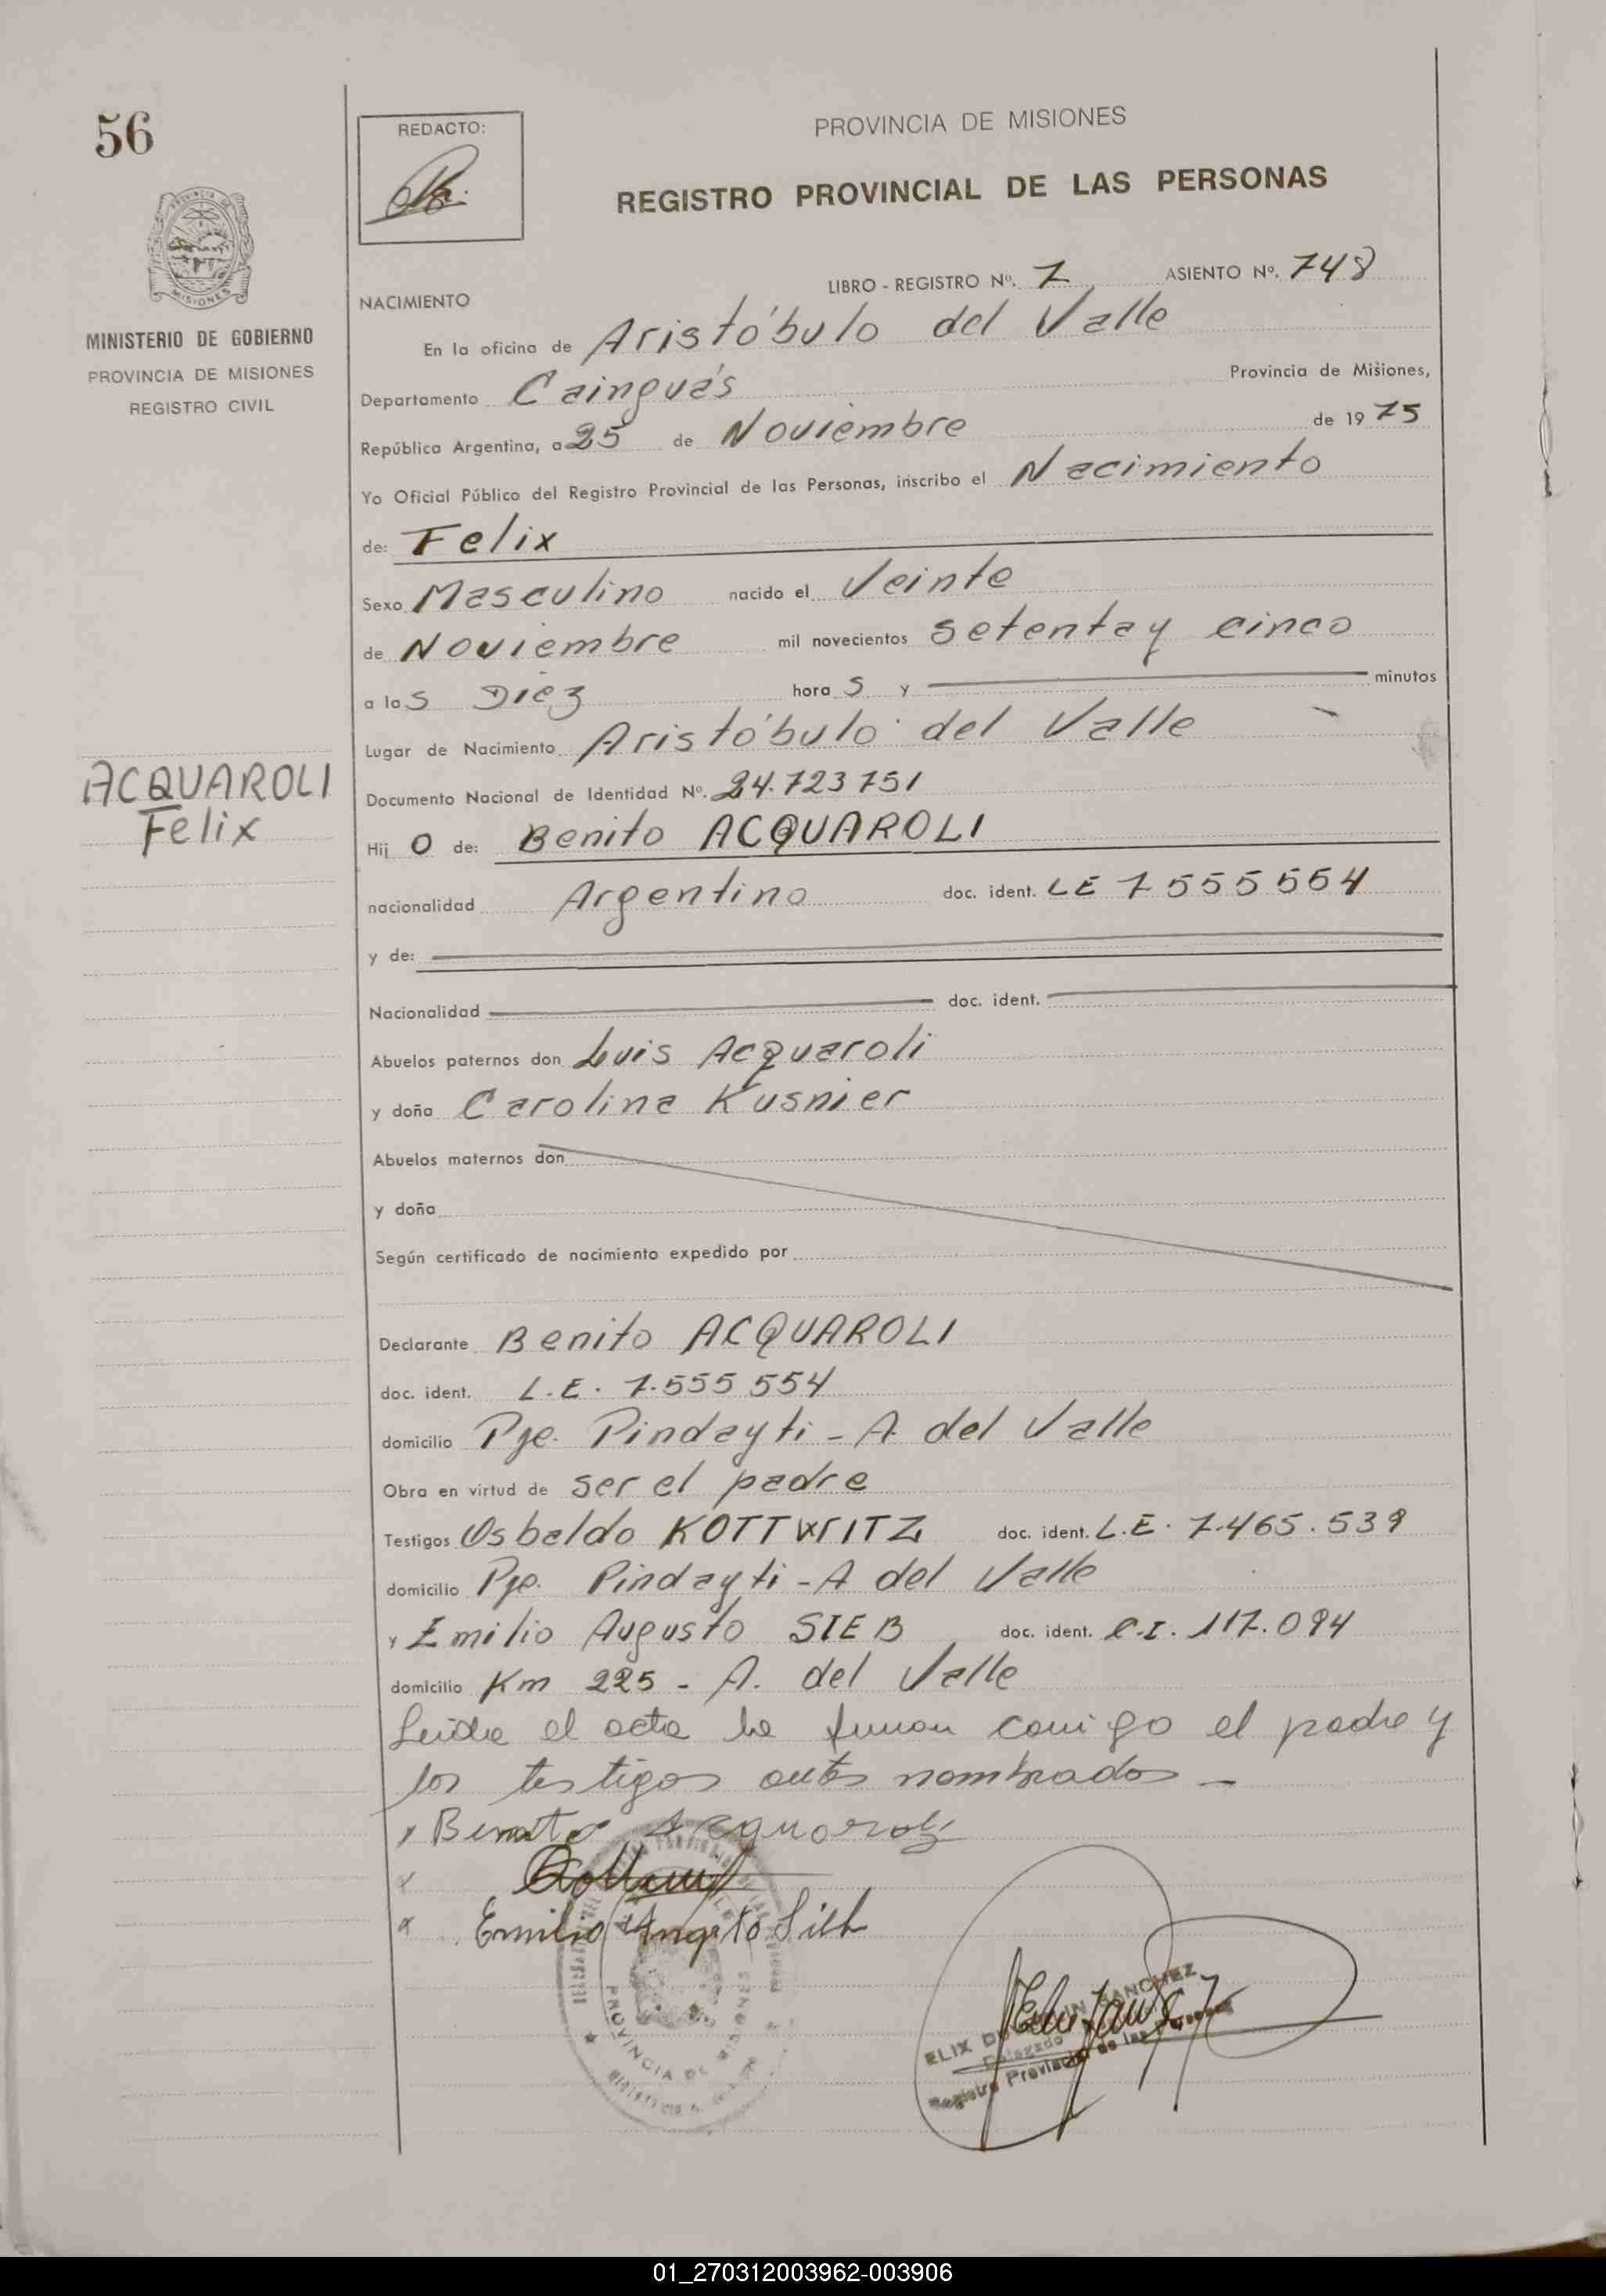 56
REDACTO:
PROVINCIA DE MISIONES
REGISTRO PROVINCIAL DE LAS PERSONAS
LIBRO - REGISTRO Nº. 7 ASIENTO Nº. 748
MISIONES
MINISTERIO DE GOBIERNO
PROVINCIA DE MISIONES
REGISTRO CIVIL
NACIMIENTO
En la oficina de Aristóbulo del Valle
Departamento Cainguás Provincia de Misiones,
República Argentina, a 25 de Noviembre de 1975
Yo Oficial Público del Registro Provincial de las Personas, inscribo el Nacimiento
de: Felix
Sexo Masculino nacido el Veinte
de Noviembre mil novecientos setenta y cinco
a las Diez horas y minutos
Lugar de Nacimiento Aristóbulo del Valle
ACQUAROLI
Felix
Documento Nacional de Identidad Nº. 24.723751
Hijo de: Benito ACQUAROLI
nacionalidad Argentino doc. ident. LE 7555554
y de:
Nacionalidad doc. ident.
Abuelos paternos don Luis Acquaroli
y doña Carolina Kusnier
Abuelos maternos don
y doña
Según certificado de nacimiento expedido por
Declarante Benito ACQUAROLI
doc. ident. L.E. 7.555 554
domicilio Pje. Pindayti - A. del Valle
Obra en virtud de ser el padre
Testigos Osbaldo KOTTWITZ doc. ident. L.E. 7.465.539
domicilio Pje. Pindayti - A del Valle
y Emilio Augusto SIEB doc. ident. C.I. 117.094
domicilio Km 225 - A. del Valle
Leida el acta la firman conmigo el padre y
los testigos antes nombrados -
x Benito Acquaroli
x
x Emilio Augusto Sieb
PROVINCIA DE
SANCHEZ
Delegado
Registro Provincial de las Personas
01_270312003962-003906